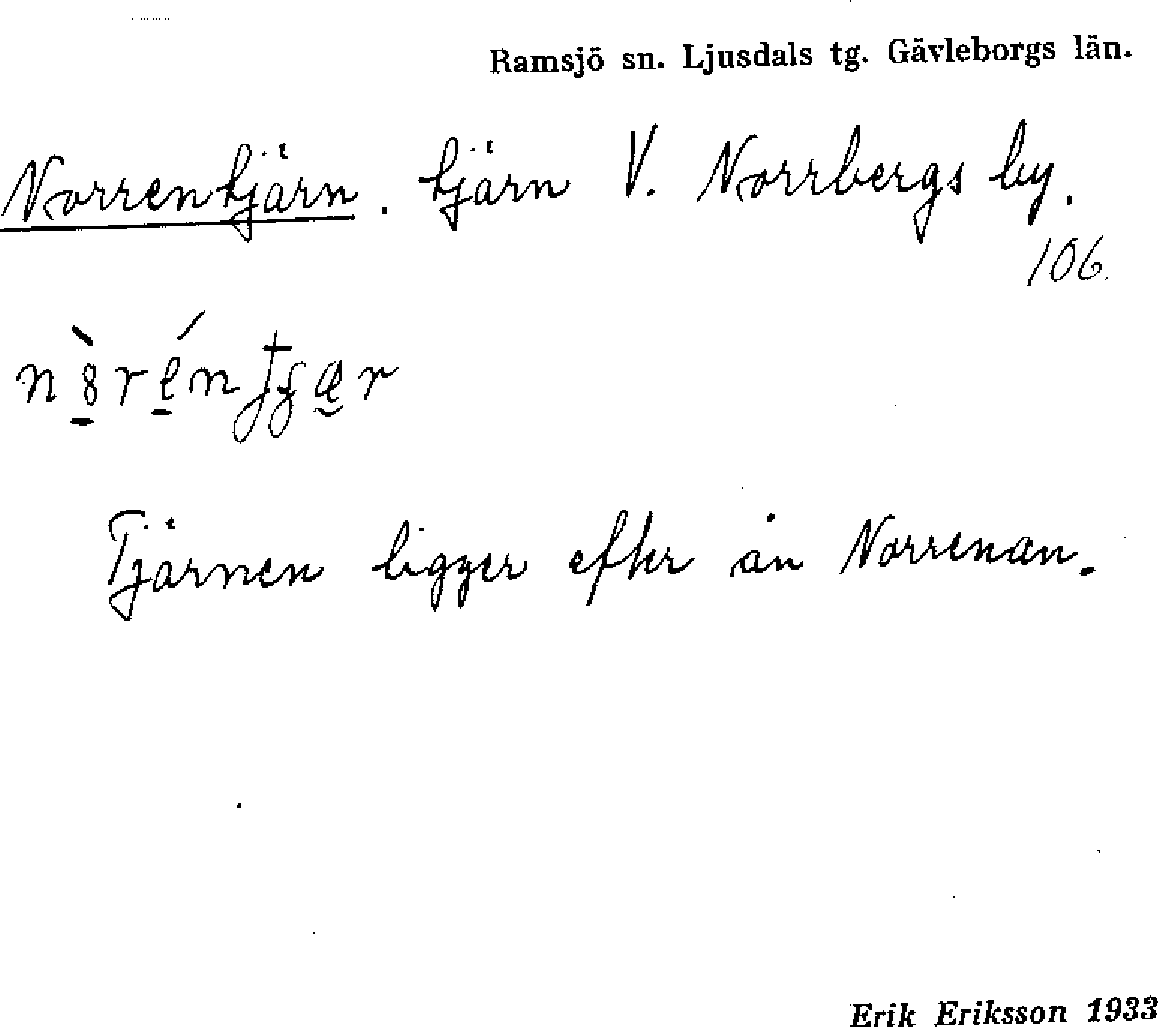 Ramsjö sn. Ljusdals tg. Gävleborgs län.
Norrentjärn. tjärn V. Norrbergs by.
106.
Tjärnen ligger efter ån Norrenån.
Erik Eriksson 1933